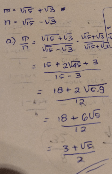 m = √15 + √3
n = √15 - √3
a) m/n = (√15 + √3)/(√15 - √3) · (√15 + √3)/(√15 + √3)
= (15 + 2√45 + 3)/(15 - 3)
= (18 + 2√5·9)/12
= (18 + 6√5)/12
= (3 + √5)/2